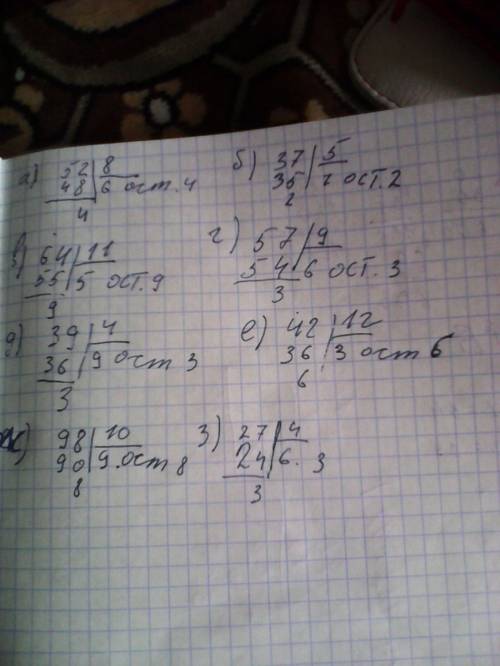 а) 52 | 8
48 | 6 ост. 4
4
б) 37 | 5
35 | 7 ост. 2
2
в) 64 | 11
55 | 5 ост. 9
9
г) 57 | 9
54 | 6 ост. 3
3
д) 39 | 4
36 | 9 ост 3
3
е) 42 | 12
36 | 3 ост 6
6
ж) 98 | 10
90 | 9. ост 8
8
з) 27 | 4
24 | 6. 3
3